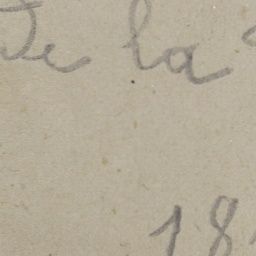 De la
18